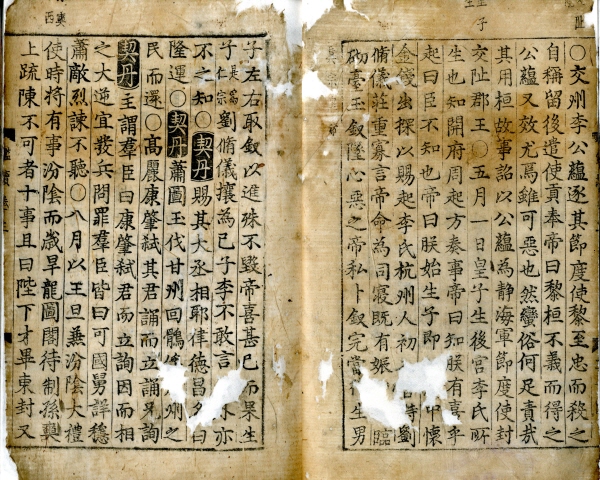 ○交州李公蘊逐其節度使黎至忠而殺之
自稱留後遣使貢奉帝曰黎桓不義而得之
公蘊又效尤焉雖可惡也然蠻俗何足責哉
其用桓故事詔以公蘊為静海軍節度使封
交阯郡王○五月一日皇子生後宮李氏所
生也知開府周起方奏事帝曰知朕有喜乎
起曰臣不知也帝曰朕始生子即 中懷
金錢出探以賜起李氏杭州人初 侍劉
脩儀莊重寡言帝命為司寢既有娠 臨
砌臺玉釵墜心惡之帝私卜釵完當 生男
子左右取釵以進殊不毀帝喜甚已而果生
子是為仁宗劉脩儀攘為己子李不敢言 亦
不之知○契丹賜其大丞相耶律德昌名曰
隆運○契丹蕭圖玉伐甘州回鶻 州之
民而還○高麗康肇弒其君誦而立誦兄詢
契丹主謂羣臣曰康肇弒君而立詢因而相
之大逆宜發兵問罪羣臣皆曰可國舅詳穩
蕭敵烈諫不聽○八月以王旦兼汾陰大禮
使時將有事汾陰而歲旱龍圖閣待制孫奭
上疏陳不可者十事且曰陛下才畢東封又